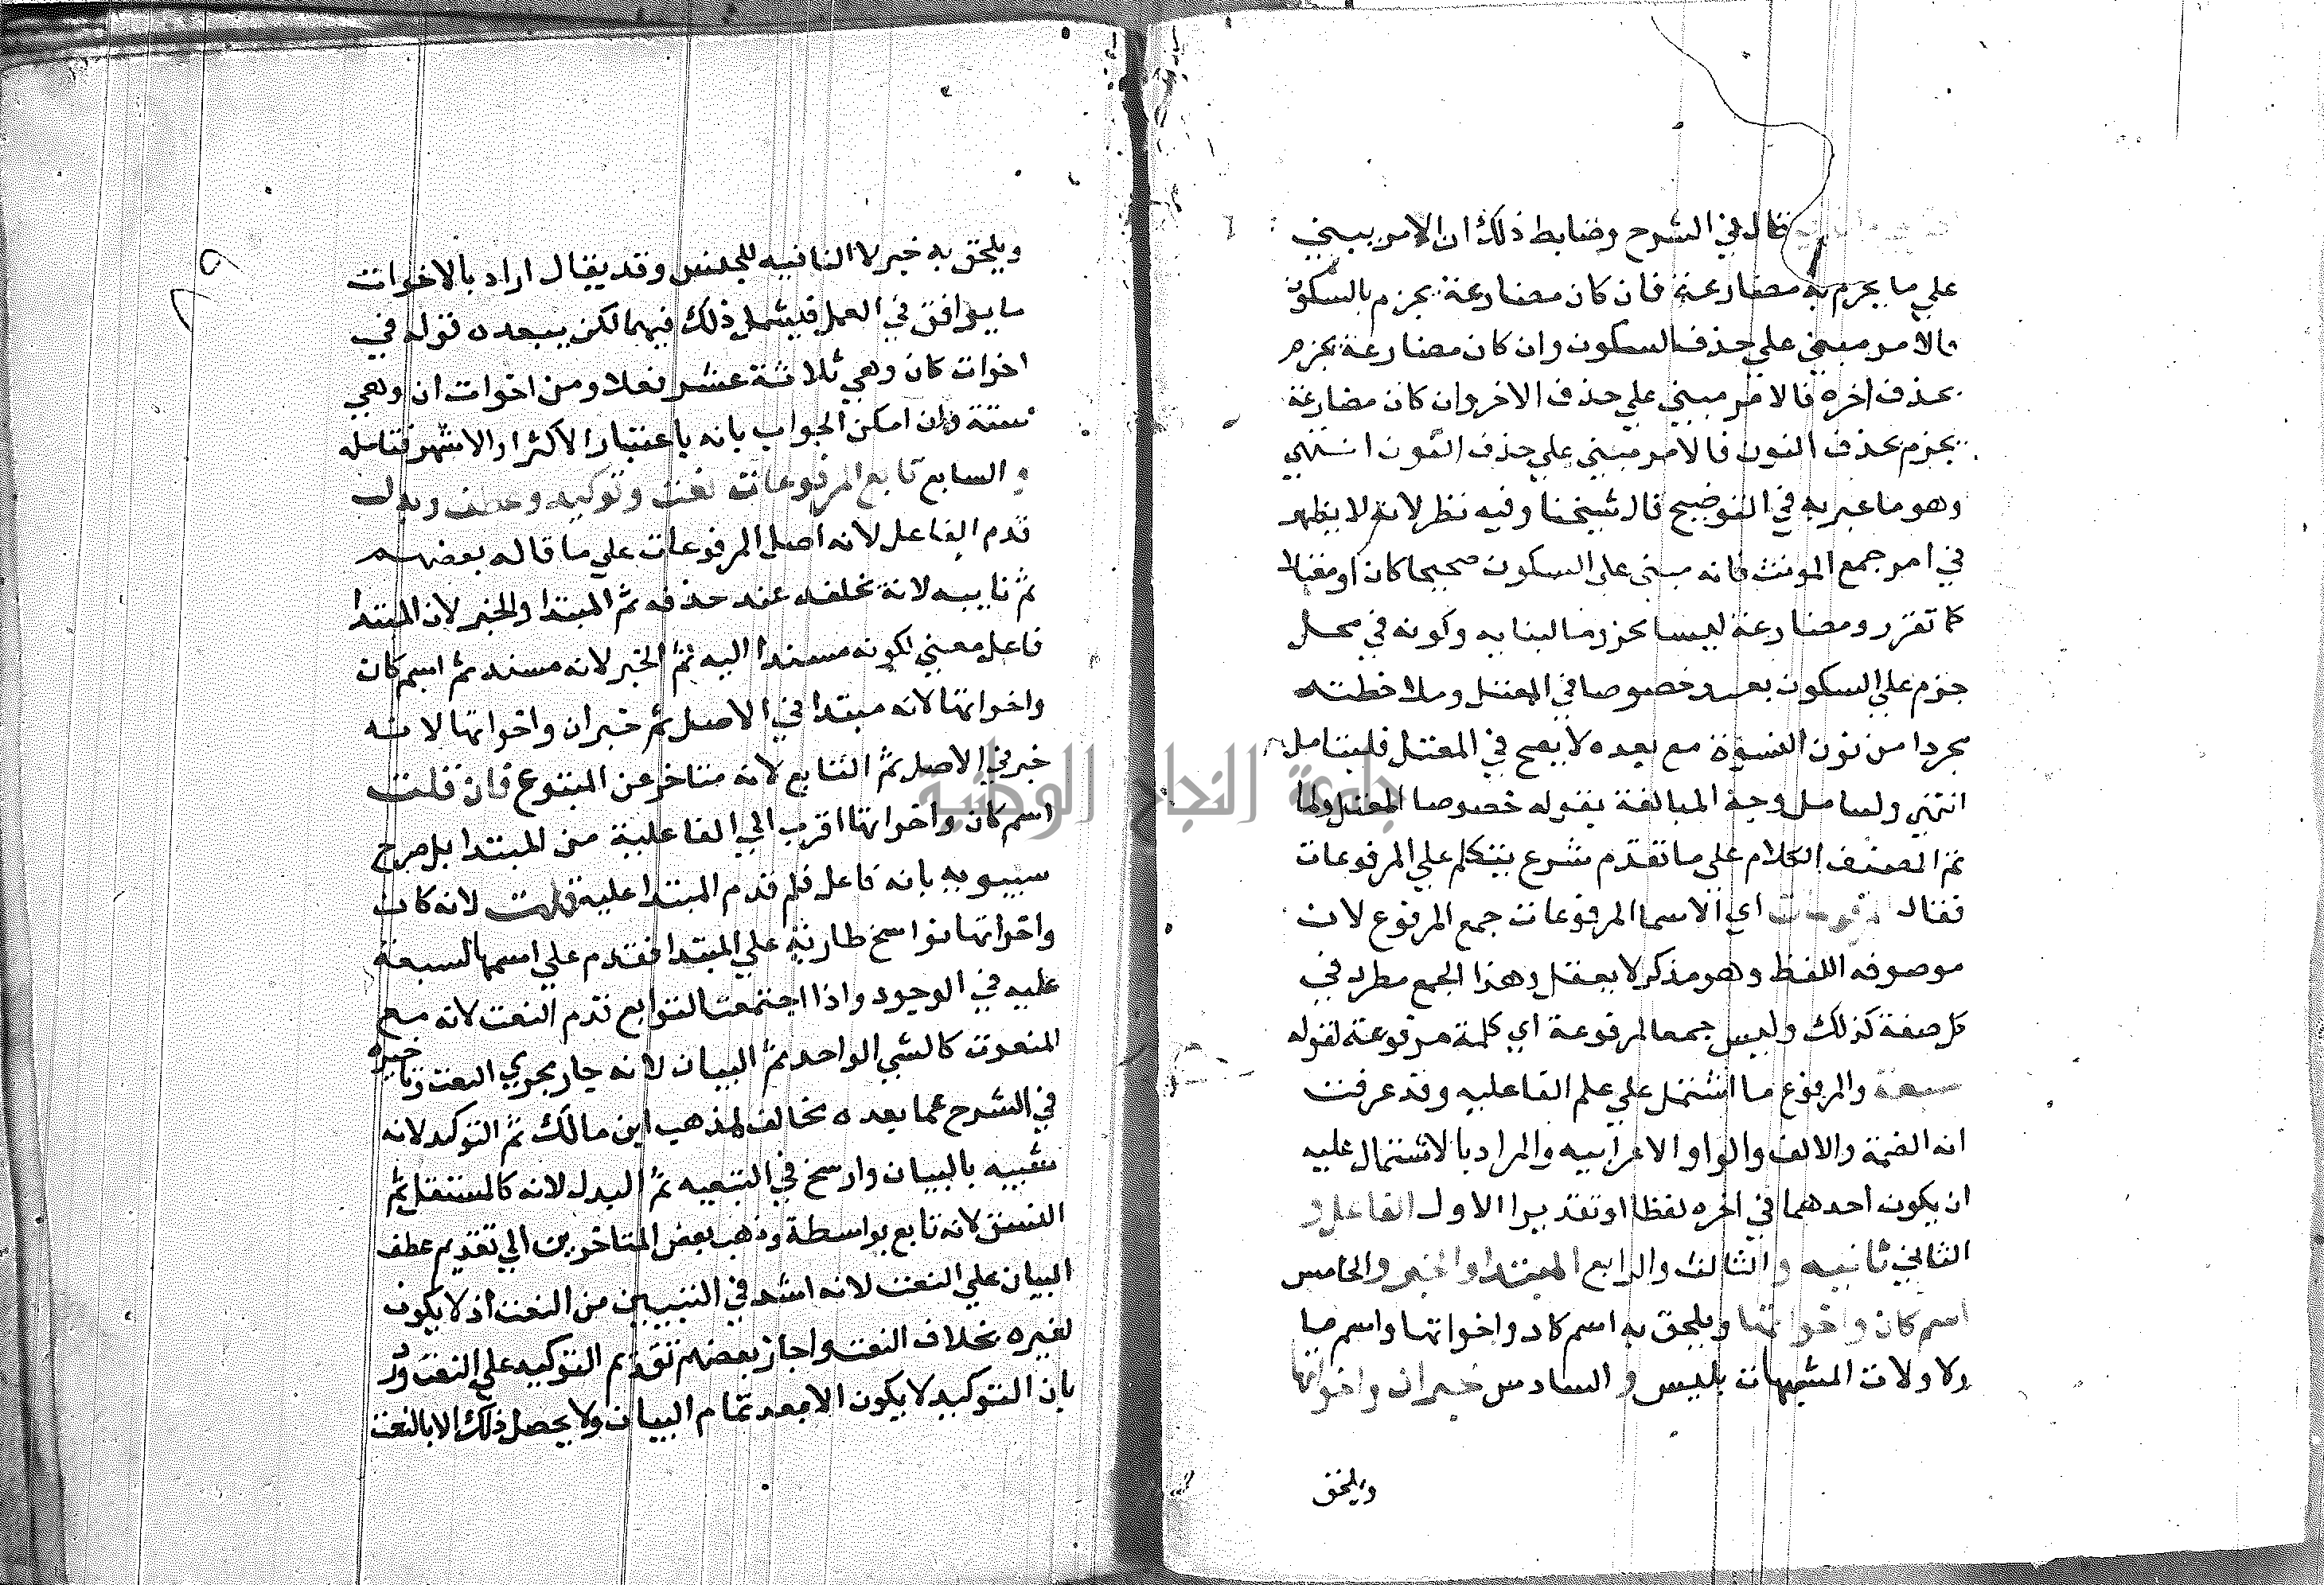 قال في الشرح وضابط ذلك ان الامر يبني
علي ما يجزم به مضارعة فان كان مضارعة يجزم بالسكون
فالامر مبني علي حذف السكون وان كان مضارعة يجزم
بحذف اخره فالامر مبني علي حذف الاخر وان كان مضارعة
يجزم بحذف النون فالامر مبني علي حذف النون انتهي
وهو ما عبر به في التوضيح قال شيخنا وفيه نظر لانه لا يظهر
في امر جمع المونث فانه مبني علي السكون صحيحا كان او معتلا
كما تقرر ومضارعة ليس مجزوما لبنايه وكونه في محل
جزم علي السكون بعيد خصوصا في المعتل وملاحظته
مجردا من نون النسوة مع بعده لا يصح في المعتل فليتامل
انتهي وليتامل وجه المبالغة بقوله خصوصا المعتل ولما
تم المصنف الكلام علي ما تقدم شرع يتكلم علي المرفوعات
فقال المرفوعات اي الاسما المرفوعات جمع المرفوع لان
موصوفه اللفظ وهو مذكر لا يعقل وهذا الجمع مطرد في
كل صفة كذلك وليس جمعا لمرفوعة اي كلمة مرفوعة لقوله
سبعة والمرفوع ما اشتمل علي علم الفاعليه وقد عرفت
انه الضمة والالف والواو الاعرابيه والمراد بالاشتمال عليه
ان يكون احدهما في اخره لفظا او تقديرا الاول الفاعل و
الثاني نائبه والثالث والرابع المبتدا والخبر والخامس
اسم كان واخواتها ويلحق به اسم كاد واخواتها واسم ما
ولا ولات المشبهات بليس و السادس خبر ان واخواتها
ويلحق
ويلحق به خبر لا النافيه للجنس وقد يقال اراد بالاخوات
ما يوافق في العمل فيشمل ذلك فيهما لكن يبعده قوله في
اخوات كان وهي ثلاثة عشر فعلا ومن اخوات ان وهي
ستة وان امكن الجواب بانه باعتبار الاكثر او الاشهر فتامله
و السابع تابع المرفوعات نعت وتوكيد وعطف وبدل
قدم الفاعل لانه اصل المرفوعات علي ما قاله بعضهم
ثم نايبه لانه يخلفه عند حذفه ثم المبتدا والخبر لان المبتدا
فاعل معني لكونه مسندا اليه ثم الخبر لانه مسند ثم اسم كان
واخواتها لانه مبتدا في الاصل ثم خبر ان واخواتها لانه
خبر في الاصل ثم التابع لانه متاخر عن المتبوع فان قلت
اسم كان واخواتها اقرب الي الفاعلية من المبتدا بل صرح
سيبويه بانه فاعل فلم قدم المبتدا عليه قلت لانه كان
واخواتها نواسخ طارئة علي المبتدا فقدم علي اسمها لسبقه
عليه في الوجود واذا اجتمعت التوابع قدم النعت لانه مع
المنعوت كالشي الواحد ثم البيان لانه جار مجري النعت وتاخيره
في الشرح عما بعده مخالف لمذهب ابن مالك ثم التوكيد لانه
شبيه بالبيان وارسخ في التبعيه ثم البدل لانه كالمستقل ثم
النسق لانه تابع بواسطة وذهب بعض المتاخرين الي تقديم عطف
البيان علي النعت لانه اشد في التبيين من النعت اذ لا يكون
لغيره بخلاف النعت واجاز بعضهم تقديم التوكيد علي النعت ورد
بان التوكيد لا يكون الا بعد تمام البيان ولا يحصل ذلك الا بالنعت
جامعة النجاح الوطنية